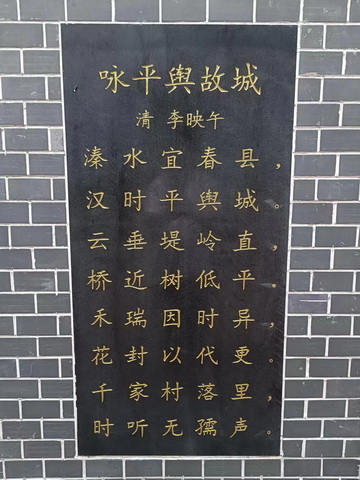 咏平舆故城
清 李映午
溱水宜春县，
汉时平舆城。
云垂堤岭直，
桥近树低平。
禾瑞因时异，
花封以代更。
千家村落里，
时听无孺声。